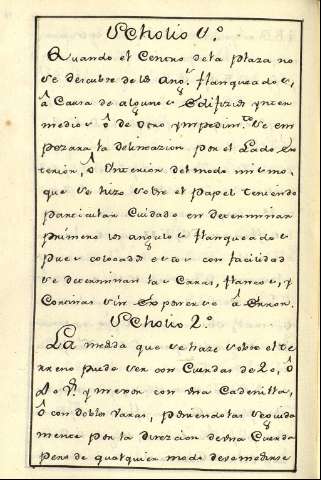 Scholio 1.º
Quando el Centro dela plaza no
se descubre de los Ang.s flanqueados,
â Causa de algunos Edifizios ynter
medios ô de otro ympedim.to se em
pezara la delineazion por el Lado Ex
terior, ô Ynterior del modo mismo,
que se hizo sobre el papel teniendo
particular Cuidado en determinar
primero los angulos flanqueados
pues colocados estos con facilidad
se determinan las Caras, flancos, y
Cortinas sin Exponerse â Error.
Scholio 2.º
La medida que se haze sobre el te
rreno puede ser con Cuerdas de 20, ô
y mejor con una Cadenilla,
ô con dobles Varas, poniendolas seguida
mente por la direzion de una Cuerda
pero de qualquier modo deve medirse